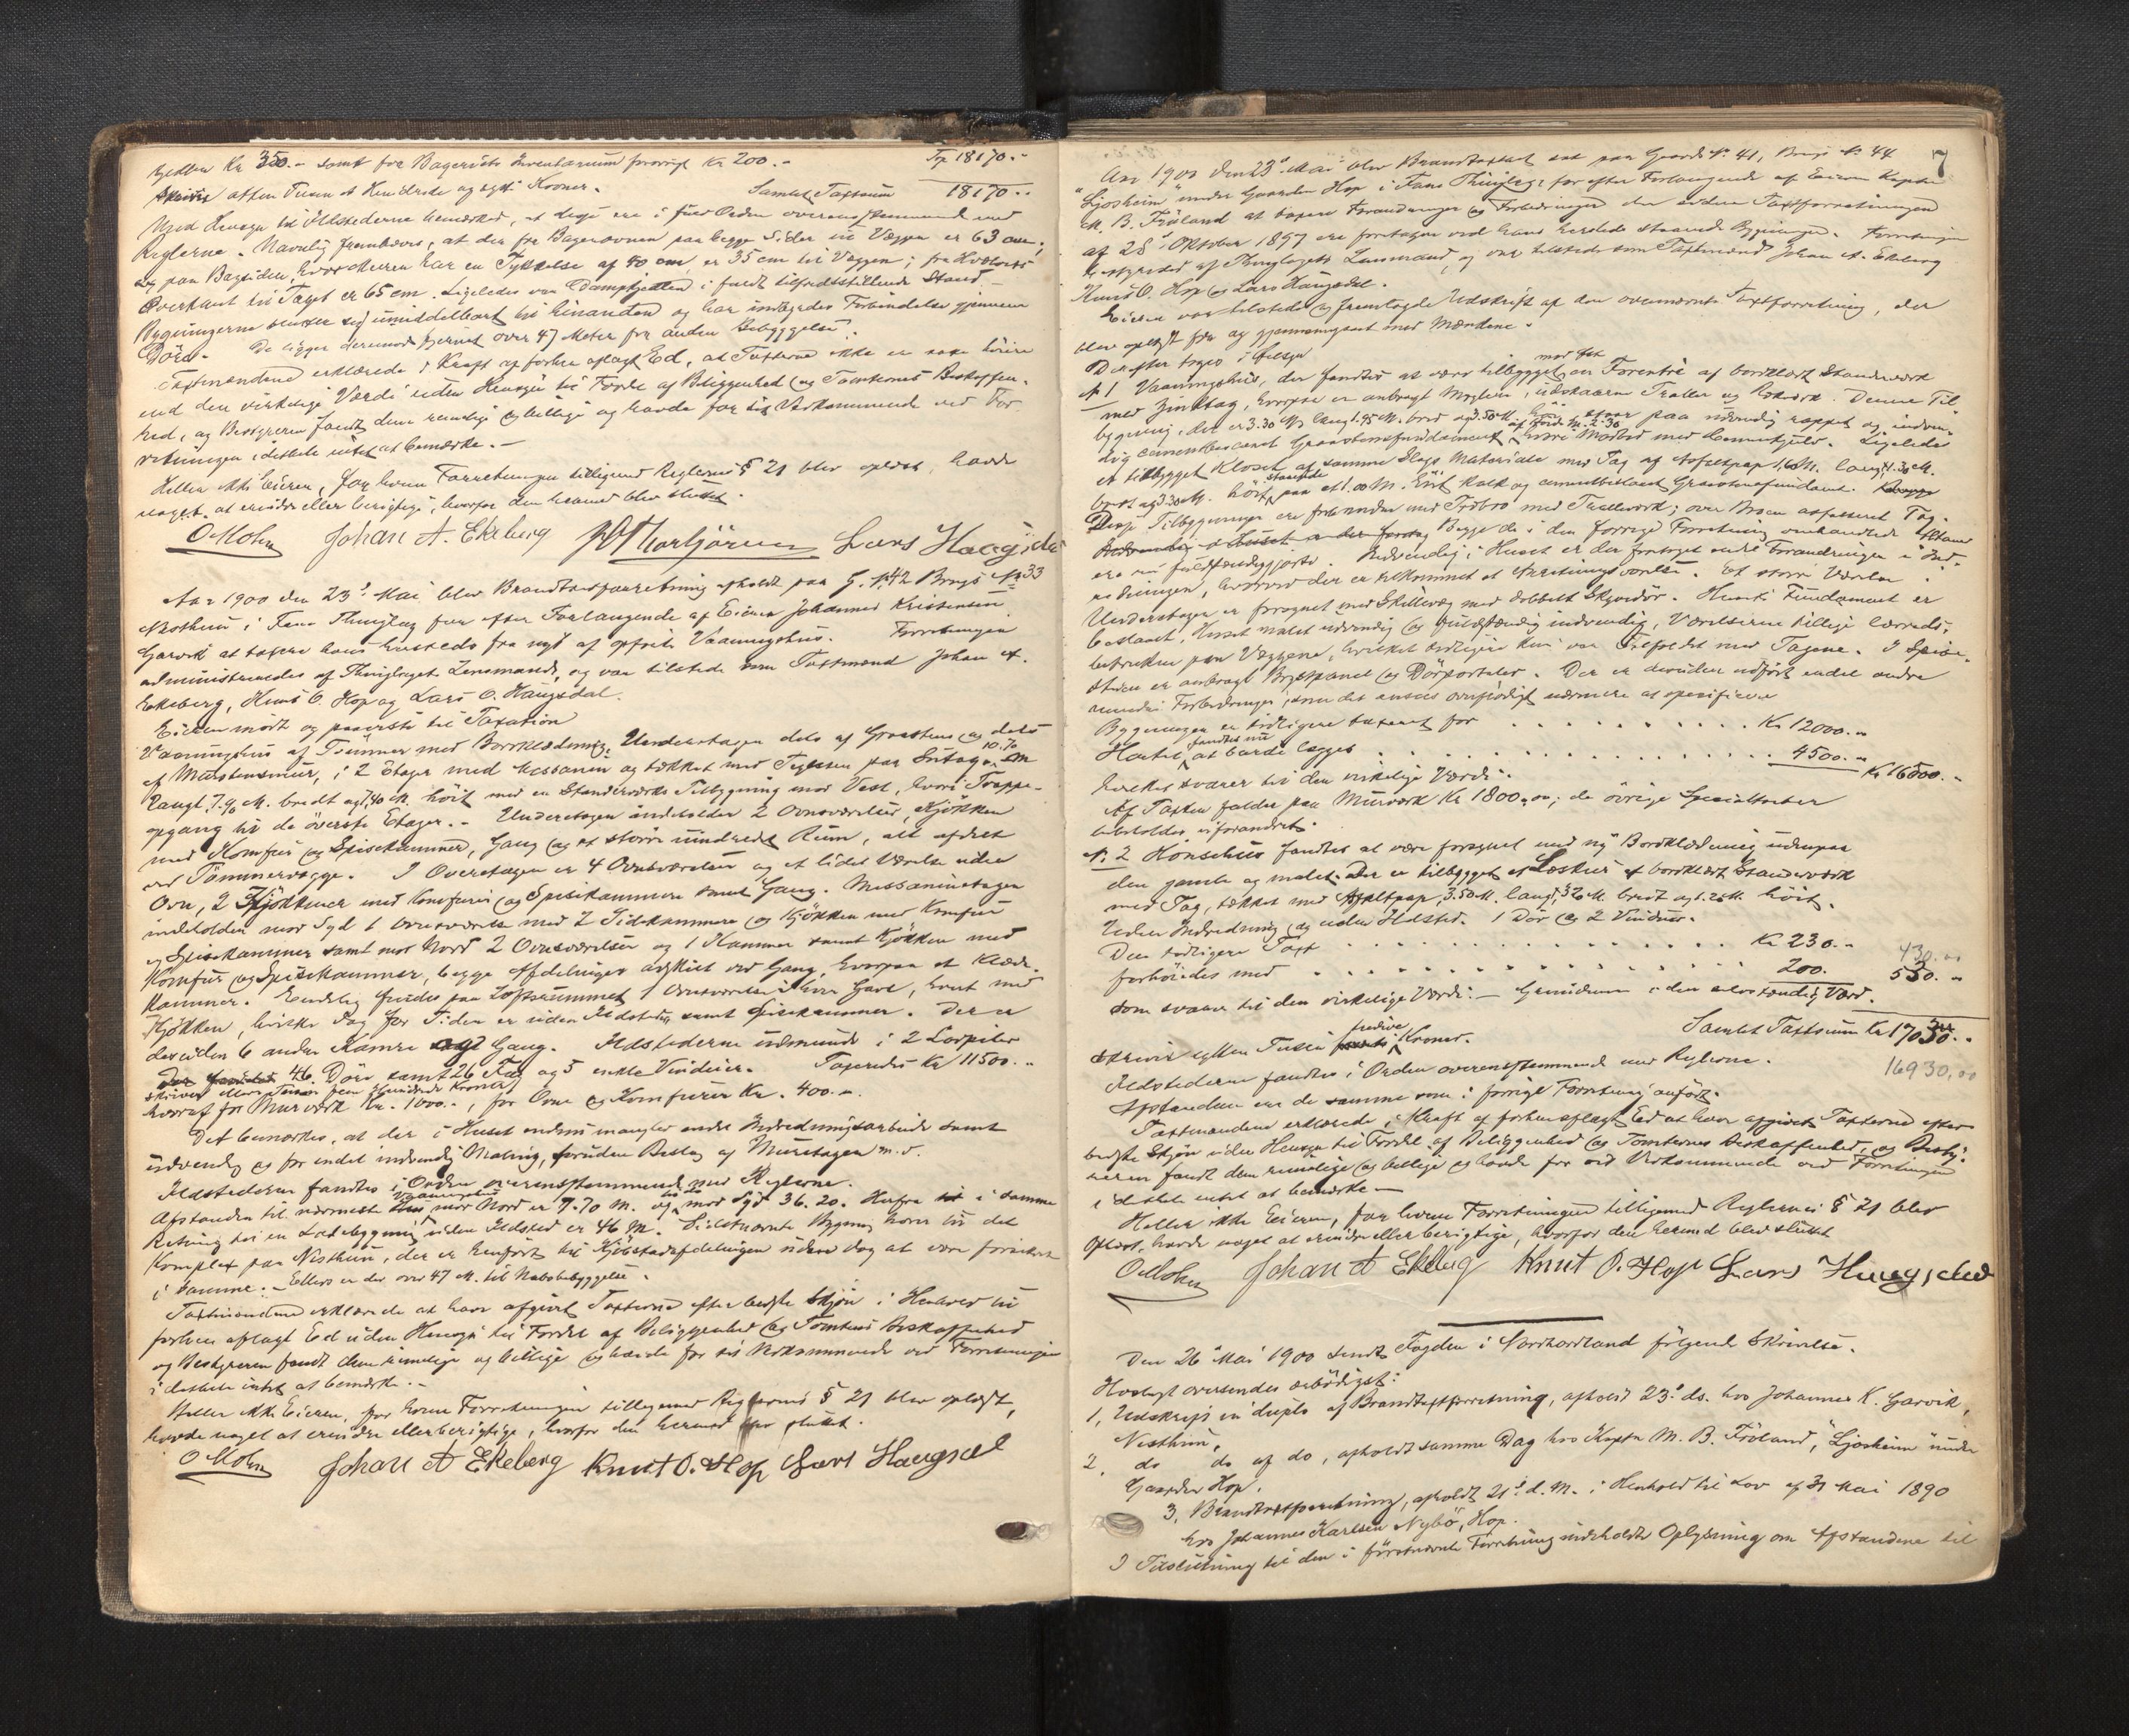 kjedlen Kr 350.- samt for Bageriets Inventarium forøvrigt Kr 200.- Trp 18170.-
skriver atten Tusen et Hundrede og sytti Kroner. Samlet Taxtsum 18170..
Med Hensyn til Ildstederne bemærkes, at disse ere i fuld Orden overensstemmende med
Reglerne. Navnlig fremhæves, at der fra Bagerovnen paa begge Sider til Væggen er 63 cm;
og paa Bagsiden, hvor Muren har en Tykkelse af 40 cm, er 35 cm til Væggen; fra Hvælvets
Overkant til Taget er 65 cm. Ligeledes var Dampkjedlen i fuldt tilfredsstillende Stand.
Bygningerne slutter sig umiddelbart til hinanden og har indbyrdes Forbindelse gjennem
Döre. De ligger derimod fjernet over 47 Meter fra anden Bebyggelse.
Taxtmændene erklærede i Kraft af forhen aflagt Ed, at Taxterne ikke er sat höiere
end den virkelige Værdi uden Hensyn til Fordel af Beliggenhed og Tomternes Beskaffen-
hed, og Bestyreren fandt dem rimelige og billige og havde for sit Vedkommende ved For-
retningen i det hele intet at bemærke.-
Heller ikke Eieren, for hvem Forretningen tilligemed Reglernes § 21 blev oplæst, havde
noget at erindre eller berigtige, hvorfor den hermed blev sluttet.
O Mohn Johan A. Ekeberg Lars Haugsdal
Aar 1900 den 23de Mai blev Brandtaxtforretning afholdt paa G. No 42 Brugs No 33
Nesthun i Fane Thinglag efter Forlangende af Eieren Johannes Kristensen
Garvik at taxere hans hersteds fra nyt af opförte Vaaningshus. Forretningen
administreredes af Thinglagets Lensmand, og var tilstede som Taxtmænd Johan A.
Ekeberg, Knut O. Hop og Lars O. Haugsdal.
Eieren mödte og paaviste til Taxation
Vaaningshus af Tömmer med Bordklædning, Underetagen dels af Graasten og dels
af Murstensmur, i 2 Etager med Messanin og tækket med Teglsten paa Sutag, 10.70 m
langt, 7.90 M. bredt og 7,40 M. höit med en Standerværks Tilbygning mod Vest, hvori Trappe-
opgang til de överste Etager.- Underetagen indeholder 2 Ovnsværelser, Kjökken
med Komfur og Spisekammer, Gang og et större uindredet Rum, alt afdelt
ved Tömmervægge. I Overetagen er 4 Ovnsværelser og et lidet Værelse uden
Ovn, 2 Kjökkener med Komfurer og Spisekammere samt Gang. Messaninetagen
indeholder mod Syd 1 Ovnsværelse med 2 Sidekammere og Kjökken med Komfur
og Spisekammer samt mod Nord 2 Ovnsværelser og 1 Kammer samt Kjökken med
Komfur og Spisekammer, begge Afdelinger adskilt ved Gang, hvorpaa et Klæde-
kammer. Endelig findes paa Loftsrummet 1 Ovnsværelse i hver Gavl, hvert med
Kjökken, hvilke dog for Tiden er uden Ildsted, samt Spisekammer. Der er
desuden 6 andre Kamre og Gang. Ildstederne udmunde i 2 Lovpiber
46 Döre samt 26 Fag og 5 enkle Vinduer. Taxeredes Kr 11500..
skriver elleve Tusen fem Hundrede Kroner
hvoraf for Murværk Kr. 1000.-, for Ovne og Komfurer Kr. 400.-.
Det bemærkes, at der i Huset endnu mangler endel Indredningsarbeide samt
udvendig og for endel indvendig Maling, foruden Beslag af Muretagen m.v.
Ildstederne fandtes i Orden overensstemmende med Reglerne.
Afstanden til nærmeste Vaaningshus mod Nord er 9.70 M. og til do mod Syd 36.20. Herfra i samme
Retning til en Ladebygning uden Ildsted er 46 M. Sidstnævnte Bygning hörer til det
Kompleks paa Nesthun, der er henfört til Kjöbstadsafdelingen uden dog at være forsikret
i samme.- Ellers er der over 47 M. til Nabobebyggelse.
Taxtmændene erklærede at have afgivet Taxterne efter bedste Skjön i Henhold til
forhen aflagt Ed uden Hensyn til Fordel af Beliggenhed og Tomtens Beskaffenhed
og Bestyreren fandt dem rimelige og billige og havde for sit Vedkommende ved Forretningen
i det hele intet at bemærke.-
Heller ikke Eieren, for hvem Forretningen tilligemed Reglernes § 21 blev oplæst,
havde noget at erindre eller berigtige, hvorfor den hermed blev sluttet.
O Mohn Johan A Ekeberg Knut O. Hop Lars Haugsdal
7
Aar 1900 den 23de Mai blev Brandtaxtforretning sat paa Gaards No. 41, Brugs No. 44
"Ljosheim" under Gaarden Hop i Fane Thinglag for efter Forlangende af Eieren Kaptein
M. B. Fröland at taxere Forandringer og Forbedringer, der siden Taxtforretningen
af 28de Oktober 1897 ere foretagne ved hans hersteds staaende Bygninger. Forretningen
bestyredes af Thinglagets Lensmand, og var tilstede som Taxtmænd Johan A. Ekeberg
Knut O. Hop og Lars Haugsdal.
Eieren var tilstede og fremlagde Udskrift af den ovennævnte Taxtforretning, der
blev oplæst for og gjennemgaaet med Mændene.
Derefter toges i Öiesyn
No 1 Vaaningshus, der fandtes at være tilbygget mod Öst en Forentré af bordklædt Standerværk
med Zinktag, hvorpaa er anbragt Möglem, udskaarne Traller og Rekværk. Denne Til-
bygning, der er 3.30 M. lang, 1.95 M. bred og 3.50 M. höi, staar paa udvendig rappet og indven-
dig cementberamt Graastensfundament. Ligeledes
et tilbygget Kloset af samme Slags Materiale med Tag af Asfaltpap 1,60 M. langt, 1.30 M.
bredt og 3.30 M. höit, staaende paa et 1.00 M. höit Kalk og cementbeslaaet Graastensfundament.
Disse Tilbygninger ere forbundne med Trebro med Trallværk; over Broen asfalteret Tag.
Begge de i den forrige Forretning omhandlede Altaner
ere nu fuldstændiggjorte. Indvendig i Huset er der foretaget endel Forandringer i Ind-
redningen, hvorved der er tilkommet et Anretningsværelse. Et större Værelse i
Underetagen er forsynet med Skillevæg med dobbelt Skyvedör. Husets Fundament er
beslaaet. Huset malet udvendig og fuldstændig indvendig, Værelserne tillige lærreds-
betrukne paa Væggene, hvilket tidligere kun var Tilfældet med Tagene. I Spise-
stuen er anbragt Brystpanel og Dörportaler. Der er desuden udfört endel andre
mindre Forbedringer, som det ansees overflödigt nærmere at specificere
Bygningen er tidligere taxeret for Kr 12000.-
Hertil fandtes nu at burde lægges 4500.- Kr 16500.-
hvilket svarer til den virkelige Værdi.
Af Taxten falder paa Murværk Kr 1800,00; de övrige Specialtaxter
beholdes uforandret.
No. 2 Hönsehus fandtes at være forsynet med ny Bordklædning udenpaa
den gamle og malet. Der er tilbygget et Læskur af bordklædt Standerværk
med Tag, tækket med Asfaltpap, 3.50 M. langt, 3.20 M. bredt og 1.20 M. höit.
Uden Indredning og uden Ildsted. 1 Dör og 2 Vinduer.
Den tidligere Taxt Kr 230.- 430.00
forhöiedes med 200. 530.-
som svarer til den virkelige Værdi.- Grundmuren i den selvstændig Værd.
Samlet Taxtsum Kr 17030..
skriver sytten Tusen tredive Kroner.
Ildstederne fandtes i Orden overensstemmende med Reglerne. 16930,00
Afstandene ere de samme som i forrige Forretning anfört.
Taxtmændene erklærede i Kraft af forhen aflagt Ed at have afgivet Taxterne efter
bedste Skjön uden Hensyn til Fordel af Beliggenhed og Tomternes Beskaffenhed, og Besty-
reren fandt dem rimelige og billige og havde for sit Vedkommende ved Forretningen
i det hele intet at bemærke.-
Heller ikke Eieren, for hvem Forretningen tilligemed Reglernes § 21 blev
oplæst, havde noget at erindre eller berigtige, hvorfor den hermed blev sluttet
O Mohn Johan A Ekeberg Knut O. Hop Lars Haugsdal
Den 26 Mai 1900 sendt Fogden i Nordhordland fölgende Skrivelse.
Hoslagt oversendes ærbödigst:
1, Udskrift in duplo af Brandtaxtforretning, afholdt 23de ds. hos Johannes K. Garvik,
Nesthun,
2, do do af do, afholdt samme Dag hos Kaptn M. B. Fröland, "Ljosheim" under
Gaarden Hop.
3, Brandtaxtforretning, afholdt 21de d. M. i Henhold til Lov af 31 Mai 1890
hos Johannes Karlsen Nybö, Hop.
I Tilslutning til den i förstnævnte Forretning indeholdte Oplysning om Afstandene til